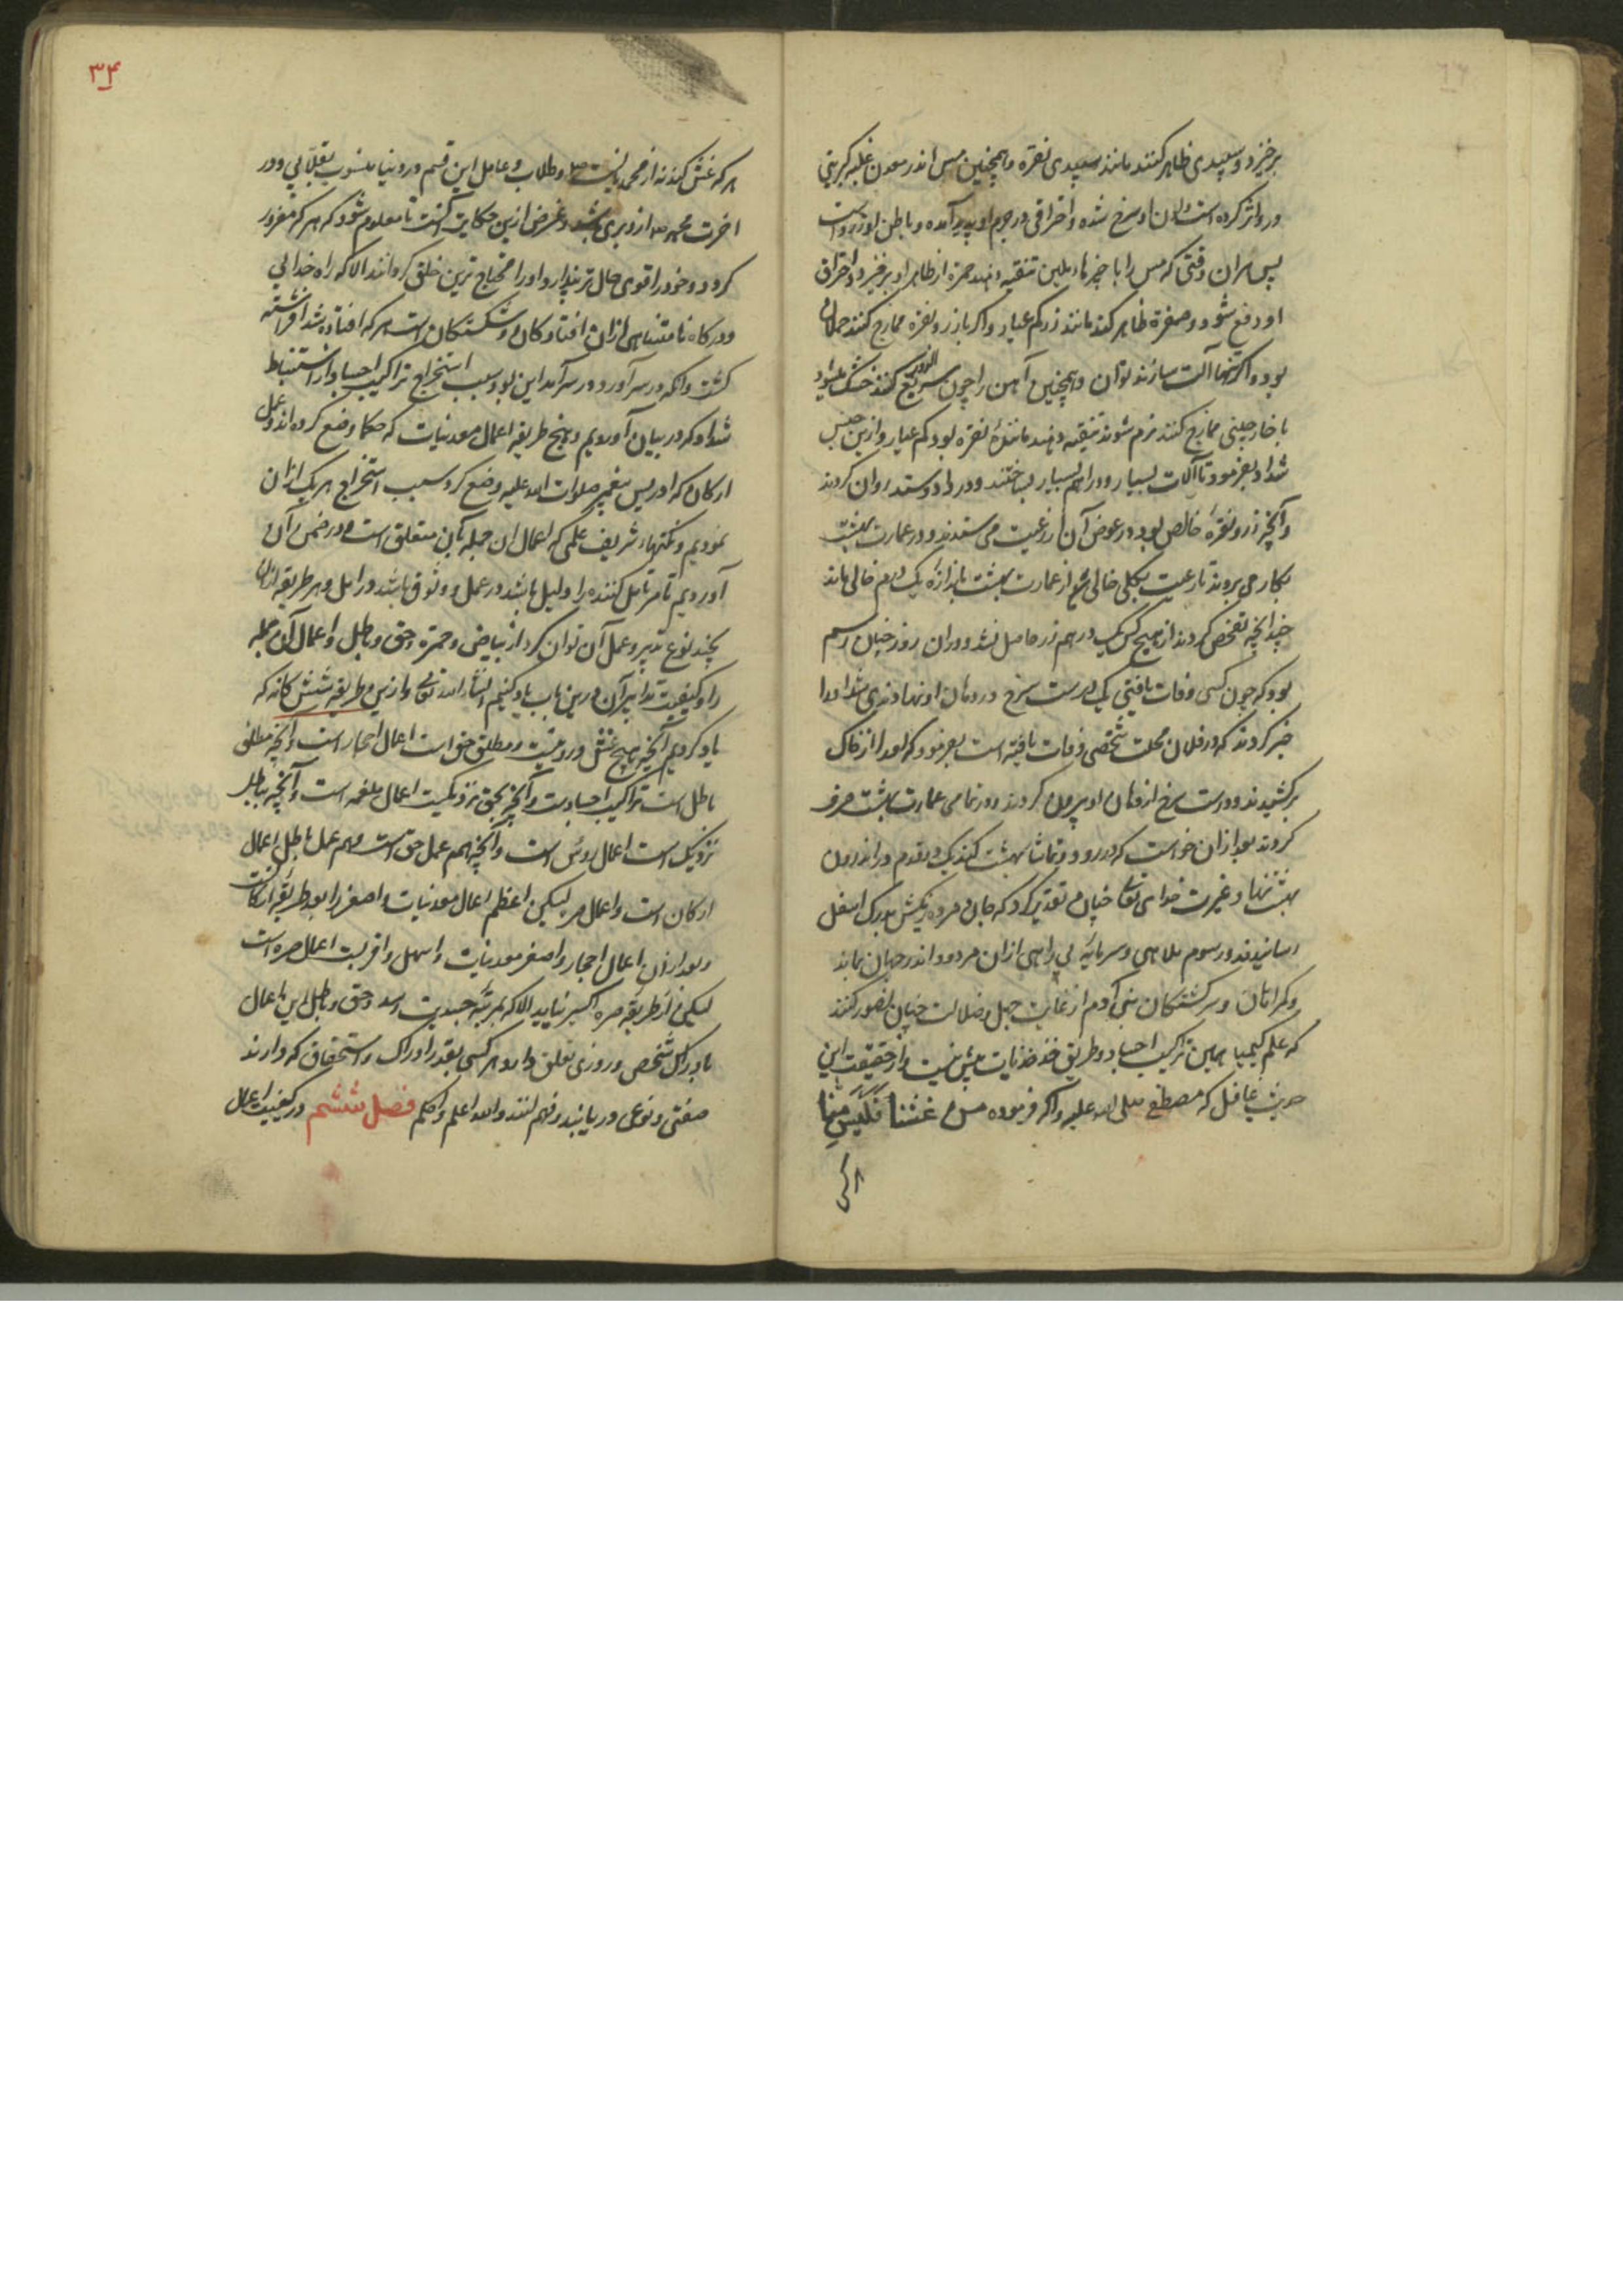 برخیزد و سپیدی ظاهر کنند مانند سپیدی نقره و همچنین مس اندر معدن غلبه کبریتی
درو اثر کرده است و لون او سرخ شده و احتراقی در جرم او پدید آمده و باطن او زرد است
پس هر آن وقتی که مس را با چیزها ملین تنقیه دهند حمرة از ظاهر او برخیزد و احتراق
او دفع شود و صفرة ظاهر کند مانند زر کم عیار و اگر با زر و نقره ممازج کنند
بود و اگر تنها آلت سازند توان و همچنین آهن را چون کنند خشک
با خارچینی ممازج کنند نرم شوند تنقیه دهند مانند نقره بود کم عیار و ازین جنس
شداد بفرمود تا آلات بسیار و دراهم بسیار بساختند و در داد و ستد روان کردند
و آنچه زر و نقره خالص بود در عوض آن از رعیت می ستدند و در عمارت بهشت
بکار می بردند تا رعیت بکلی خالی از عمارت بهشت باندازه یک درم خالی ماند
چندانچه تفحص کردند از هیچ کس یک درهم زر حاصل نشد و در آن روز چنان رسم
بود که چون کسی وفات یافتی یک درست سرخ در دهان او نهادندی شداد را
خبر کردند که در فلان محلت شخصی وفات یافته است بفرمود که او را از خاک
برکشیدند و درست سرخ از دهان او بیرون کردند و در تمامی عمارت بهشت صرف
کردند بعد از آن خواست که در رود و تماشا بهشت کند یک دو قدم در اندرون
بهشت نهاد غیرت خدای تعالی چنان تقدیر کرد که جان مرده ریگش بدرک اسفل
رسانیدند و رسوم ملاهی و سرمایه بی راهی از آن مردود اندر جهان بماند
و گمراهان و سرگشتگان بنی آدم از غایت جهل و ضلالت چنان تصور کنند
که علم کیمیا همین تراکیب اجساد و طریق بیش نیست و از حقیقت این
حدیث غافل که مصطفی صلی الله علیه و آله فرموده من غشنا فلیس منا
هر که غش کند نه از محمدیانست و طلاب و عامل این قسم در دنیا منسوب بقلابی و در
آخرت محمد از و بری باشد و غرض ازین حکایت آنست تا معلوم شود که هر که مغرور
گردد و خود را قوی حال تر پندارد او را محتاج ترین خلق گردانند الا که راه خدایی
و درگاه نامتناهی از آن افتادگان و شکستگان است هر که افتاده شد افراشته
گشت و آنکه در سر آورد در سر آمد این بود سبب استخراج تراکیب اجساد و استنباط
شداد که در بیان آوردیم و پنج طریقه اعمال معدنیات که حکما وضع کرده اند و عمل
ارکان که ادریس پیغمبر صلوات الله علیه وضع کرد سبب استخراج هر یک از آن
نمودیم و نکتهاء شریف علمی که اعمال آن جمله بآن متعلق است در ضمن آن
آوردیم تا مر تأمل کننده را دلیل باشد در عمل و وثوق باشد در امل و هر طریقه از آن
بچند نوع تدبیر و عمل آن توان کرد از بیاض و حمرة و حق و باطل و اعمال آن جمله
را و کیفیت تدابیر آن درین باب یاد کنیم انشاء الله تعالی و ازین طریقه شش گانه که
یاد کردیم آنچه هیچ غش درو نیست و مطلق حق است اعمال احجار است و آنچه مطلق
باطل است تراکیب اجساد است و آنچه بحق نزدیکست اعمال ملغمه است و آنچه بباطل
نزدیک است اعمال روس است و آنچه هم عمل حق است و هم عمل باطل اعمال
ارکان است و اعمال صره لیکن اعظم اعمال معدنیات و اصغر را بود طریقه ارکانست
و بعد از آن اعمال احجار و اصغر معدنیات و اسهل و اقرب اعمال صره است
لیکن از طریقه صره اکسیر نیاید الا که بمرتبه جسدیت رسد و حق و باطل این اعمال
بادراک شخص و روزی تعلق دارد هر کسی بقدر ادراک و استحقاق که دارند
صفتی و نوعی دریابند و فهم کنند والله اعلم و احکم فصل ششم در کیفیت اعمال
۳۴